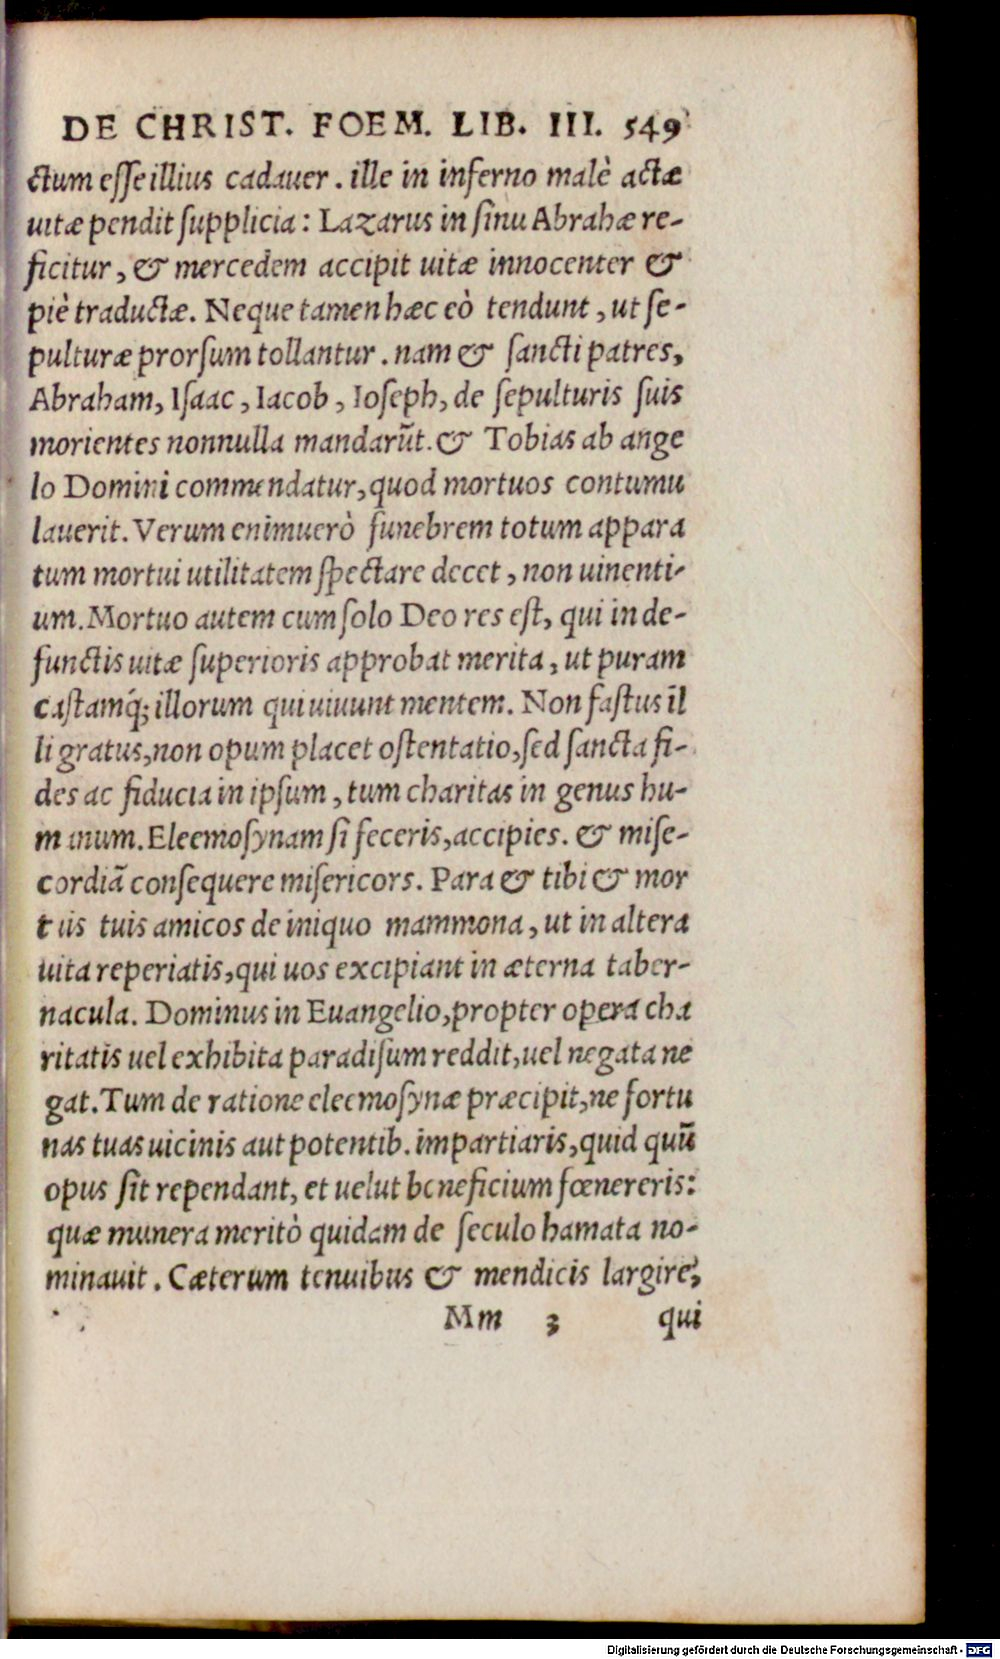 DE CHRIST. FOEM. LIB. III. 549
ctum esse illius cadauer. ille in inferno malè actæ
uitæ pendit supplicia: Lazarus in sinu Abrahæ re-
ficitur, & mercedem accipit uitæ innocenter &
piè traductæ. Neque tamen hæc eò tendunt, ut se-
pulturæ prorsum tollantur. nam & sancti patres,
Abraham, Isaac, Iacob, Ioseph, de sepulturis suis
morientes nonnulla mandarūt. & Tobias ab ange
lo Domini commendatur, quod mortuos contumu
lauerit. Verum enimuerò funebrem totum appara
tum mortui utilitatem spectare decet, non uiuenti-
um. Mortuo autem cum solo Deo res est, qui in de-
functis uitæ superioris approbat merita, ut puram
castamq́; illorum qui uiuunt mentem. Non fastus il
li gratus, non opum placet ostentatio, sed sancta fi-
des ac fiducia in ipsum, tum charitas in genus hu-
manum. Eleemosynam si feceris, accipies. & mise-
cordiā consequere misericors. Para & tibi & mor
tuis tuis amicos de iniquo mammona, ut in altera
uita reperiatis, qui uos excipiant in æterna taber-
nacula. Dominus in Euangelio, propter opera cha
ritatis uel exhibita paradisum reddit, uel negata ne
gat. Tum de ratione eleemosynæ præcipit, ne fortu
nas tuas uicinis aut potentib. impartiaris, quid quū
opus sit rependant, et uelut beneficium fœnereris:
quæ munera meritò quidam de seculo hamata no-
minauit. Cæterum tenuibus & mendicis largire,
Mm 3 qui
Digitalisierung gefördert durch die Deutsche Forschungsgemeinschaft - DFG